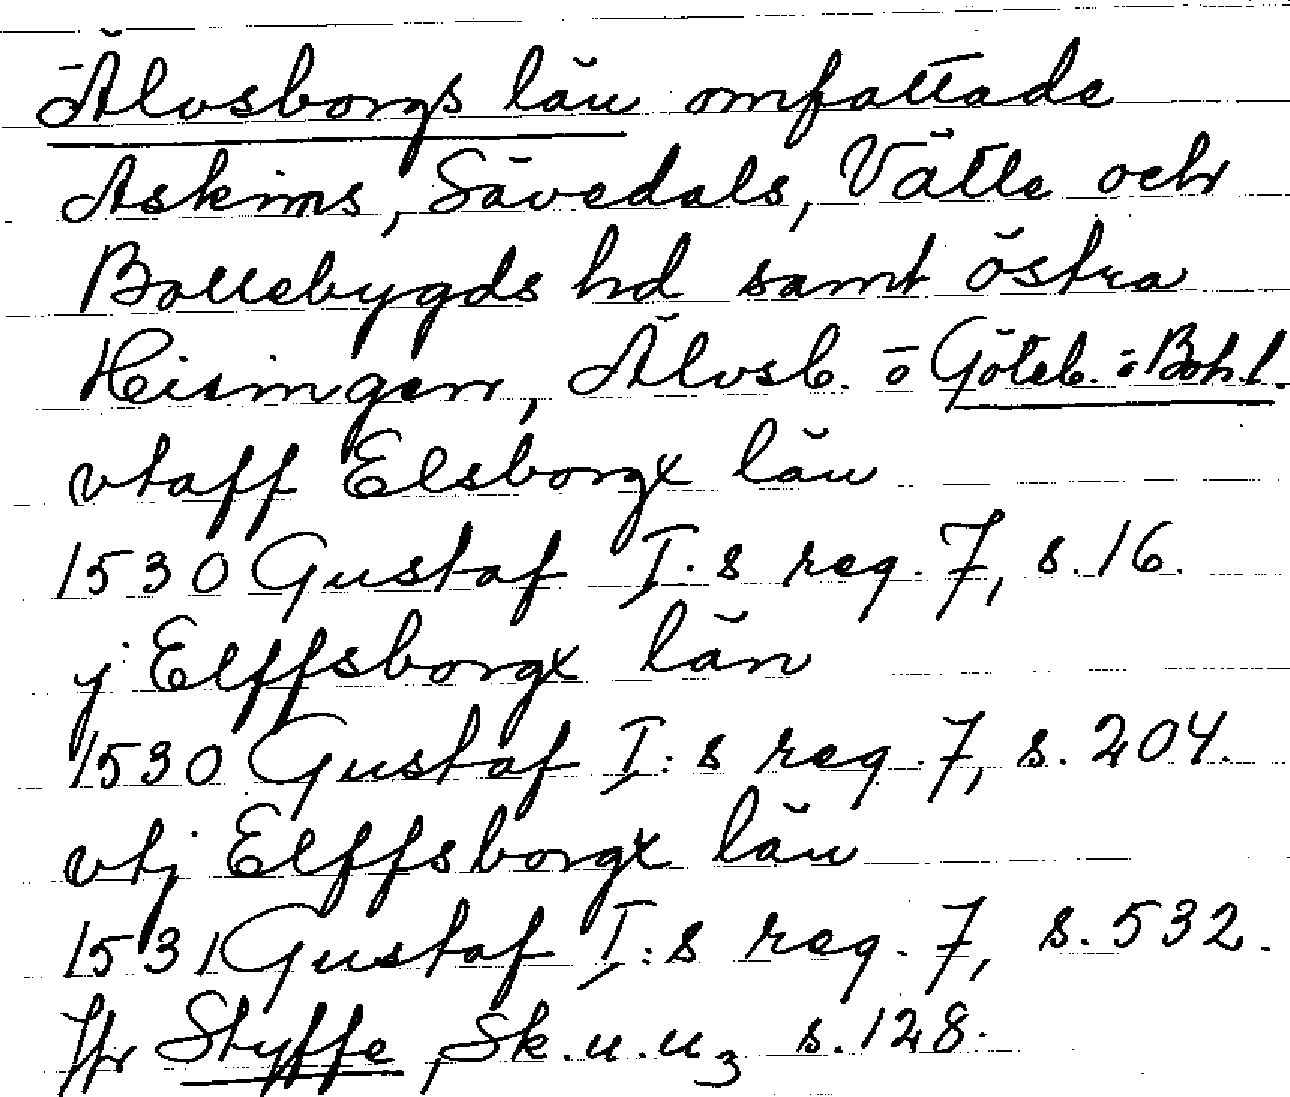 Älvsborgs län omfattade
Askims, Sävedals, Vätle och
Bollebygds hd samt östra
Hisingen, Älvsb. o Göteb. o Boh. l.
vtaff Elsborgx län
1530 Gustaf I:s reg. 7, s. 16.
j Elffsborgx län
1530 Gustaf I:s reg. 7, s. 204.
vtj Elffsborgx län
1531 Gustaf I:s reg. 7, s. 532.
Jfr Styffe, Sk.u.u₃ s. 128.